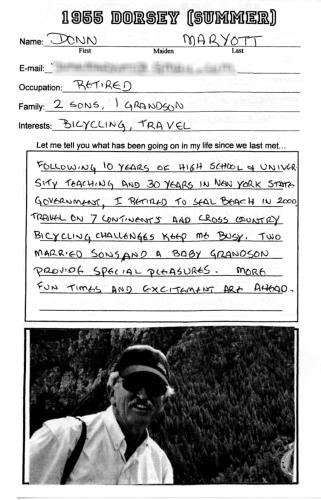 1955 DORSEY (SUMMER)
Name: DONN MARYOTT
First Maiden Last
E-mail:
Occupation: RETIRED
Family: 2 SONS, 1 GRANDSON
Interests: BICYCLING, TRAVEL
Let me tell you what has been going on in my life since we last met...
FOLLOWING 10 YEARS OF HIGH SCHOOL & UNIVER-
SITY TEACHING AND 30 YEARS IN NEW YORK STATE
GOVERNMENT, I RETIRED TO SEAL BEACH IN 2000
TRAVEL ON 7 CONTINENTS AND CROSS COUNTRY
BICYCLING CHALLENGES KEEP ME BUSY. TWO
MARRIED SONS AND A BABY GRANDSON
PROVIDE SPECIAL PLEASURES. MORE
FUN TIMES AND EXCITEMENT ARE AHEAD.